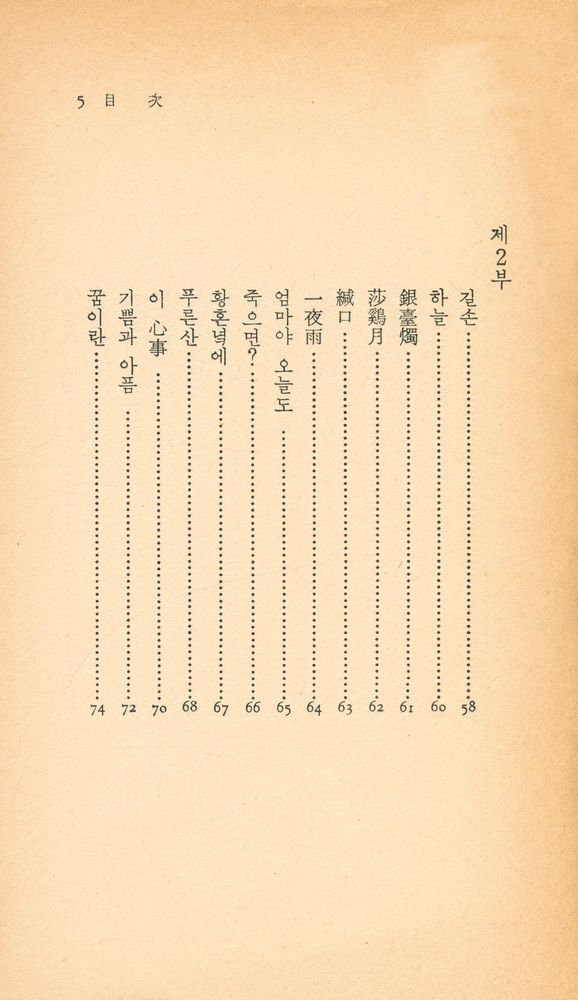 5 目 次
제2부
길손 58
하늘 60
銀臺燭 61
莎鷄月 62
緘口 63
一夜雨 64
엄마야 오늘도 65
죽으면? 66
황혼녘에 67
푸른산 68
이 心事 70
기쁨과 아픔 72
꿈이란 74